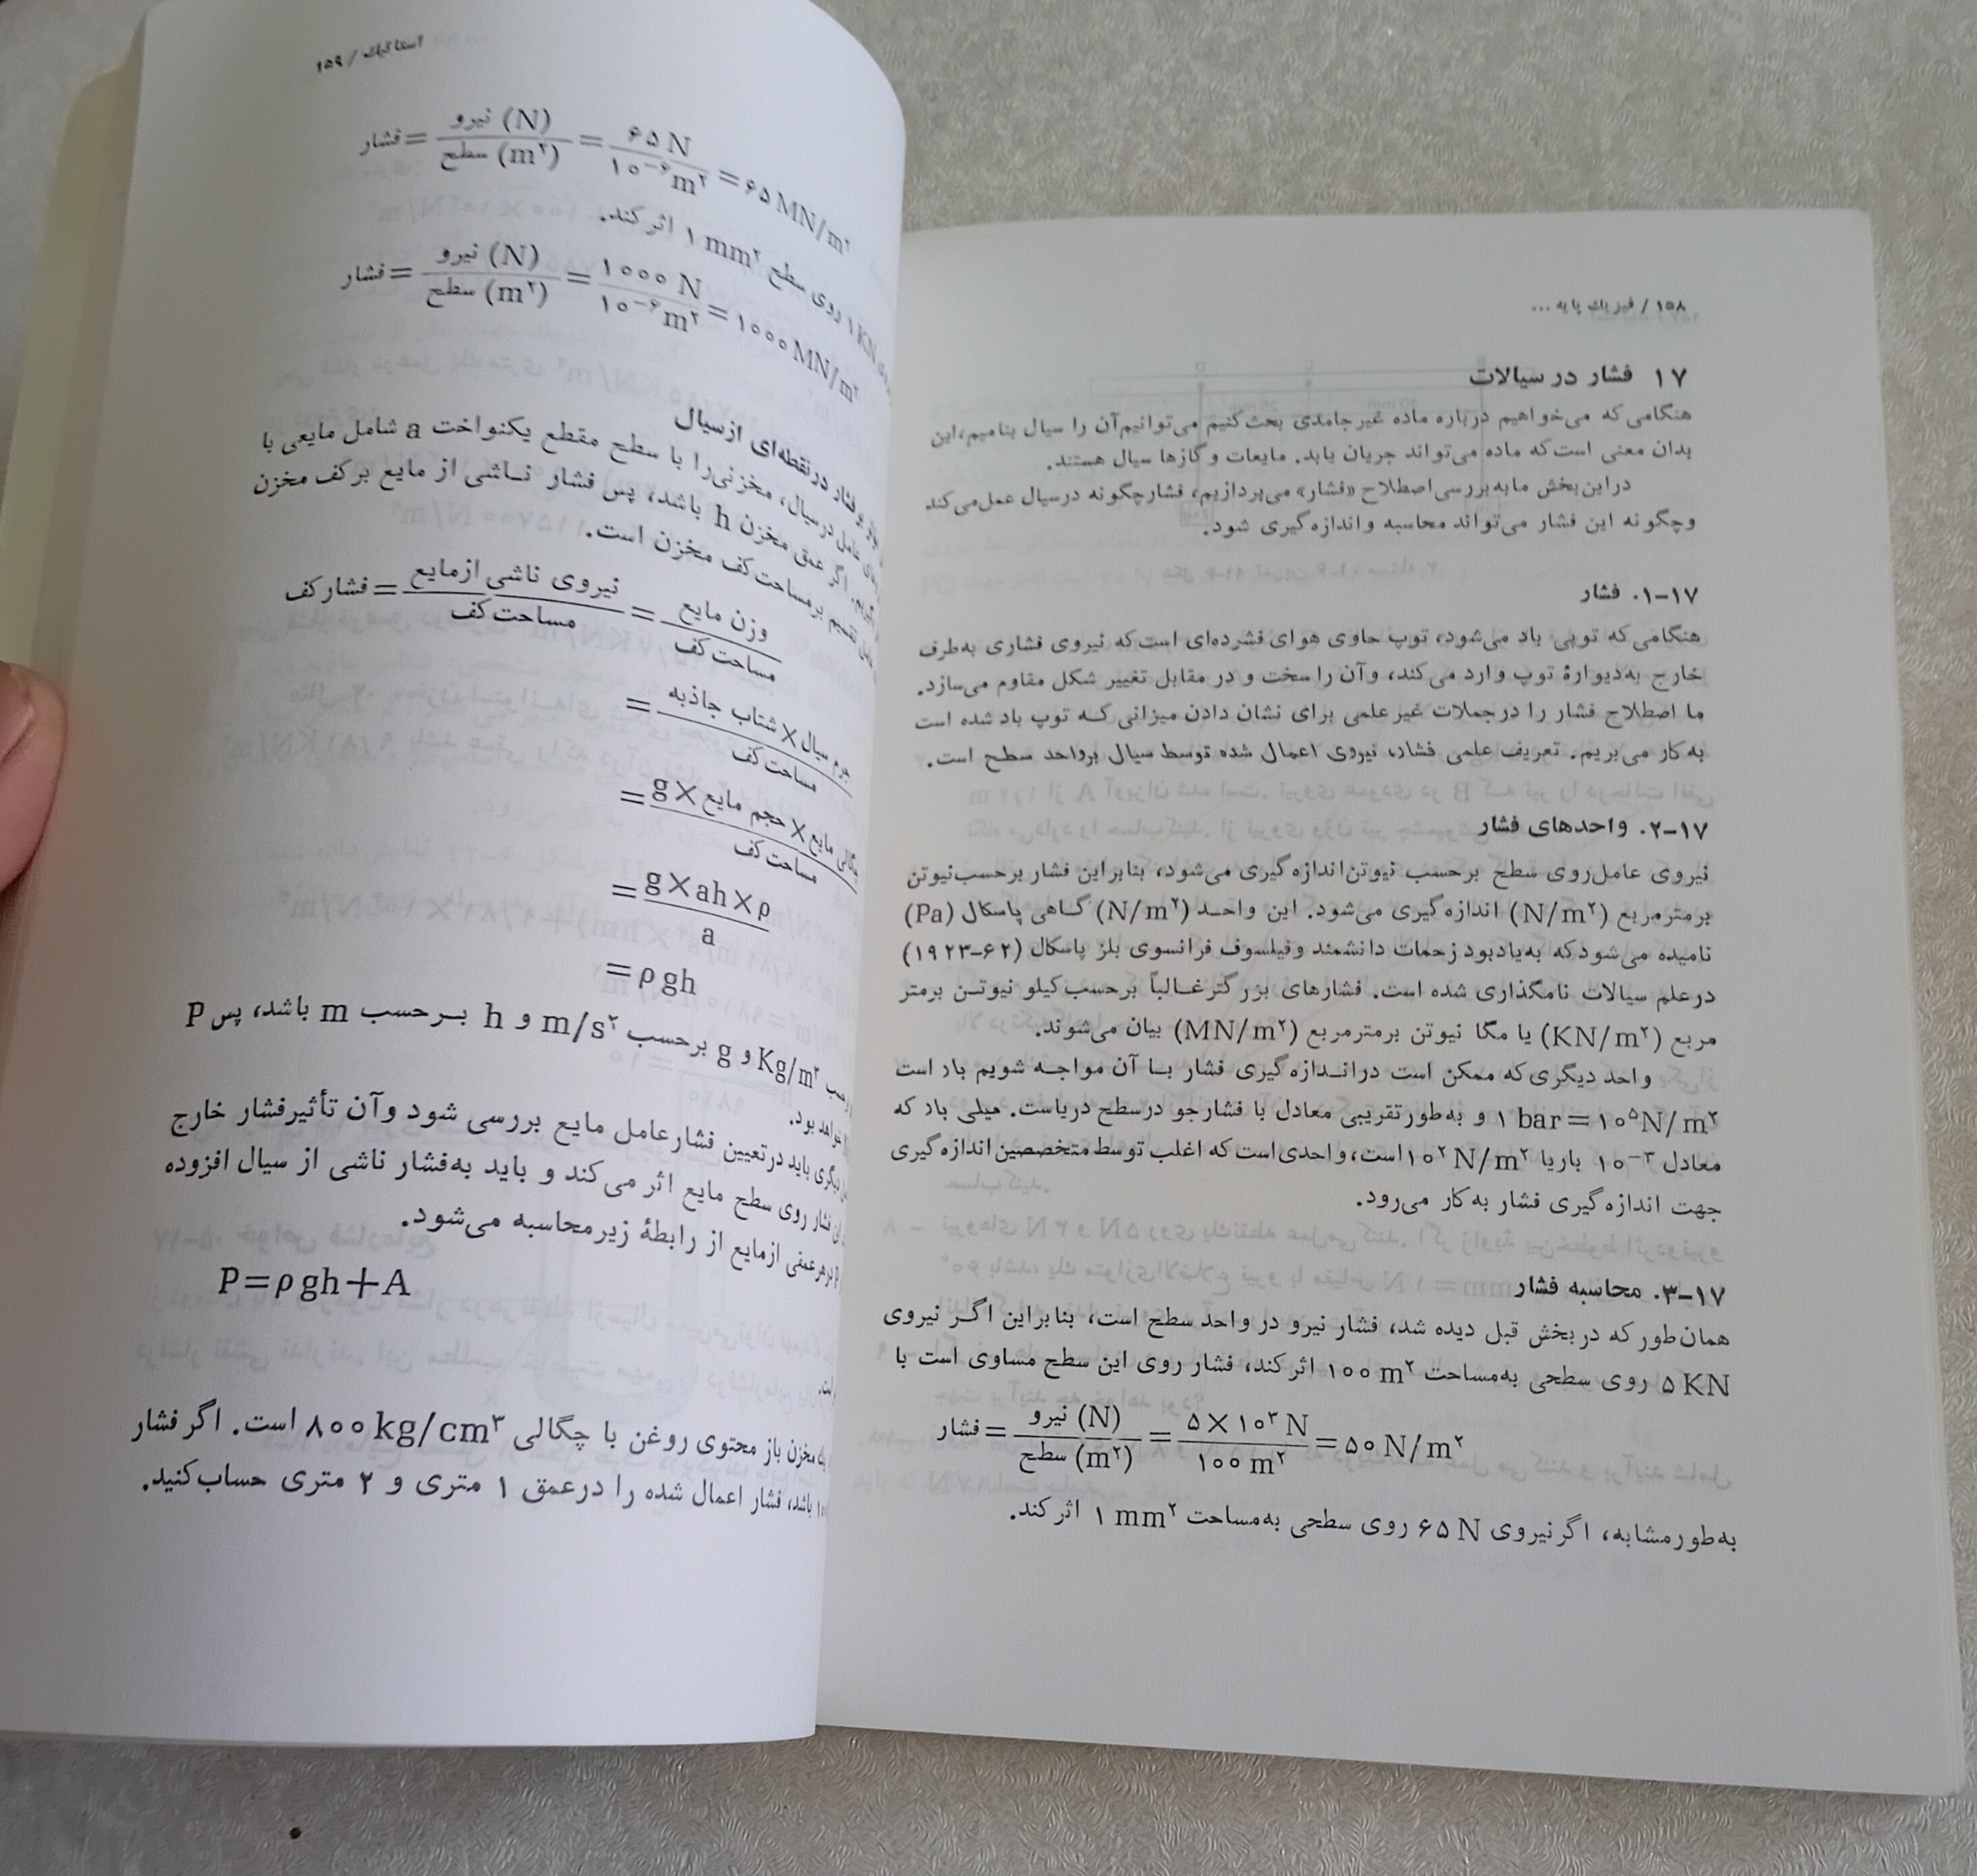 ۱۵۸ / فیزیك پایه ...
۱۷ فشار در سیالات
هنگامی که می‌خواهیم درباره ماده غیرجامدی بحث کنیم می‌توانیم آن را سیال بنامیم، این
بدان معنی است که ماده می‌تواند جریان یابد. مایعات و گازها سیال هستند.
در این بخش ما به بررسی اصطلاح «فشار» می‌پردازیم، فشار چگونه در سیال عمل می‌کند
و چگونه این فشار می‌تواند محاسبه و اندازه گیری شود.
۱۷–۱. فشار
هنگامی که توپی باد می‌شود، توپ حاوی هوای فشرده‌ای است که نیروی فشاری به‌طرف
خارج به‌دیوارهٔ توپ وارد می‌کند، و آن را سخت و در مقابل تغییر شکل مقاوم می‌سازد.
ما اصطلاح فشار را در جملات غیر علمی برای نشان دادن میزانی کـه توپ باد شده است
به کار می‌بریم. تعریف علمی فشار، نیروی اعمال شده توسط سیال بر واحد سطح است.
۱۷–۲. واحدهای فشار
نیروی عامل روی سطح بر حسب نیوتن اندازه گیری می‌شود، بنابراین فشار بر حسب نیوتن
بر متر مربع (N/m²) اندازه گیری می‌شود. این واحـد (N/m²) گـاهی پاسکال (Pa)
نامیده می‌شود که به یادبود زحمات دانشمند و فیلسوف فرانسوی بلز پاسکال (۶۲–۱۹۲۳)
در علم سیالات نامگذاری شده است. فشارهای بزرگتر غـالباً بر حسب کیلو نیوتـن بر متر
مربع (KN/m²) یا مگا نیوتن بر متر مربع (MN/m²) بیان می‌شوند.
واحد دیگری که ممکن است در انـدازه گیری فشار بـا آن مواجـه شویم بار است
۱ bar = ۱۰⁵ N/m² و به‌طور تقریبی معادل با فشار جو در سطح دریاست. میلی بار که
معادل ۱۰⁻³ بار یا ۱۰² N/m² است، واحدی است که اغلب توسط متخصصین اندازه گیری
جهت اندازه گیری فشار به کار می‌رود.
۱۷–۳. محاسبه فشار
همان طور که در بخش قبل دیده شد، فشار نیرو در واحد سطح است، بنابراین اگـر نیروی
۵ KN روی سطحی به‌مساحت ۱۰۰ m² اثر کند، فشار روی این سطح مساوی است با
فشار = نیرو (N) / سطح (m²) = ۵ × ۱۰³ N / ۱۰۰ m² = ۵۰ N/m²
به‌طور مشابه، اگر نیروی ۶۵ N روی سطحی به‌مساحت ۱ mm² اثر کند.
استاتیك / ۱۵۹
فشار = نیرو (N) / سطح (m²) = ۶۵ N / ۱۰⁻⁶ m² = ۶۵ MN/m²
۱ KN روی سطح ۱ mm² اثر کند.
فشار = نیرو (N) / سطح (m²) = ۱۰۰۰ N / ۱۰⁻⁶ m² = ۱۰۰۰ MN/m²
فشار در نقطه‌ای از سیال
عامل در سیال، مخزنی را با سطح مقطع یکنواخت a شامل مایعی با
اگر عمق مخزن h باشد، پس فشار نـاشی از مایع بر کف مخزن
تقسیم بر مساحت کف مخزن است.
فشار کف = نیروی ناشی از مایع / مساحت کف = وزن مایع / مساحت کف
= جرم سیال × شتاب جاذبه / مساحت کف
= چگالی مایع × حجم مایع × g / مساحت کف
= g × ah × ρ / a
= ρ gh
Kg/m³ و g برحسب m/s² و h بـرحسب m باشد، پس P
خواهد بود.
دیگری باید در تعیین فشار عامل مایع بررسی شود و آن تأثیر فشار خارج
این فشار روی سطح مایع اثر می‌کند و باید به‌فشار ناشی از سیال افزوده
در هر عمقی از مایع از رابطهٔ زیر محاسبه می‌شود.
P = ρ gh + A
مخزن باز محتوی روغن با چگالی ۸۰۰ kg/cm³ است. اگر فشار
باشد، فشار اعمال شده را در عمق ۱ متری و ۲ متری حساب کنید.